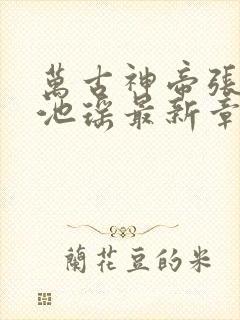 萬古神帝張
池瑤最新章
蘭花豆的米